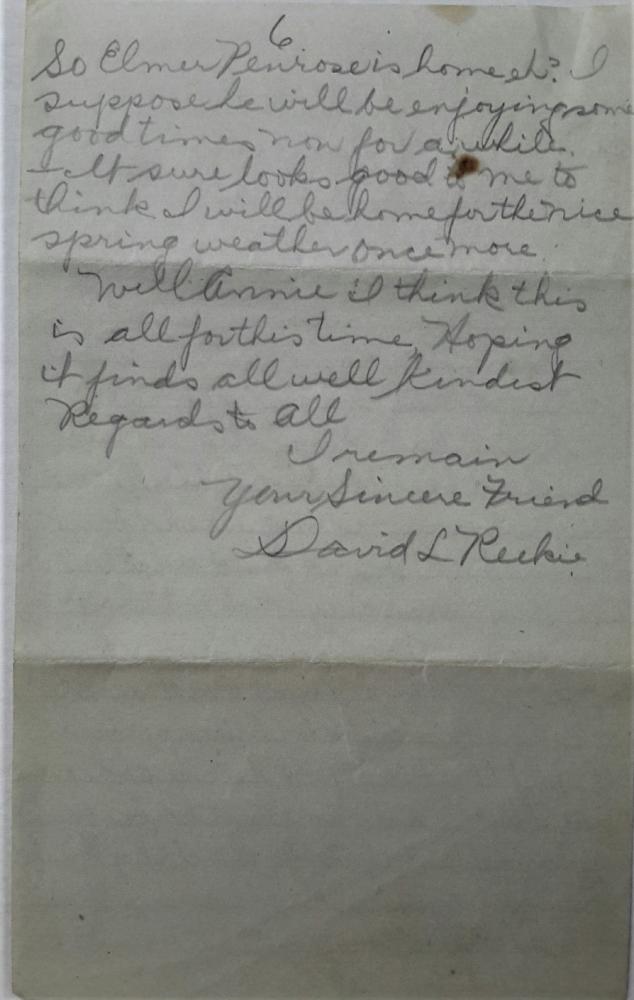 6
So Elmer Penrose is home eh? I
suppose he will be enjoying some
good times now for awhile.
- It sure looks good to me to
think I will be home for the nice
spring weather once more.
Well Annie I think this
is all for this time, Hoping
it finds all well Kindest
Regards to all
I remain
Your Sincere Friend
David L Reekie